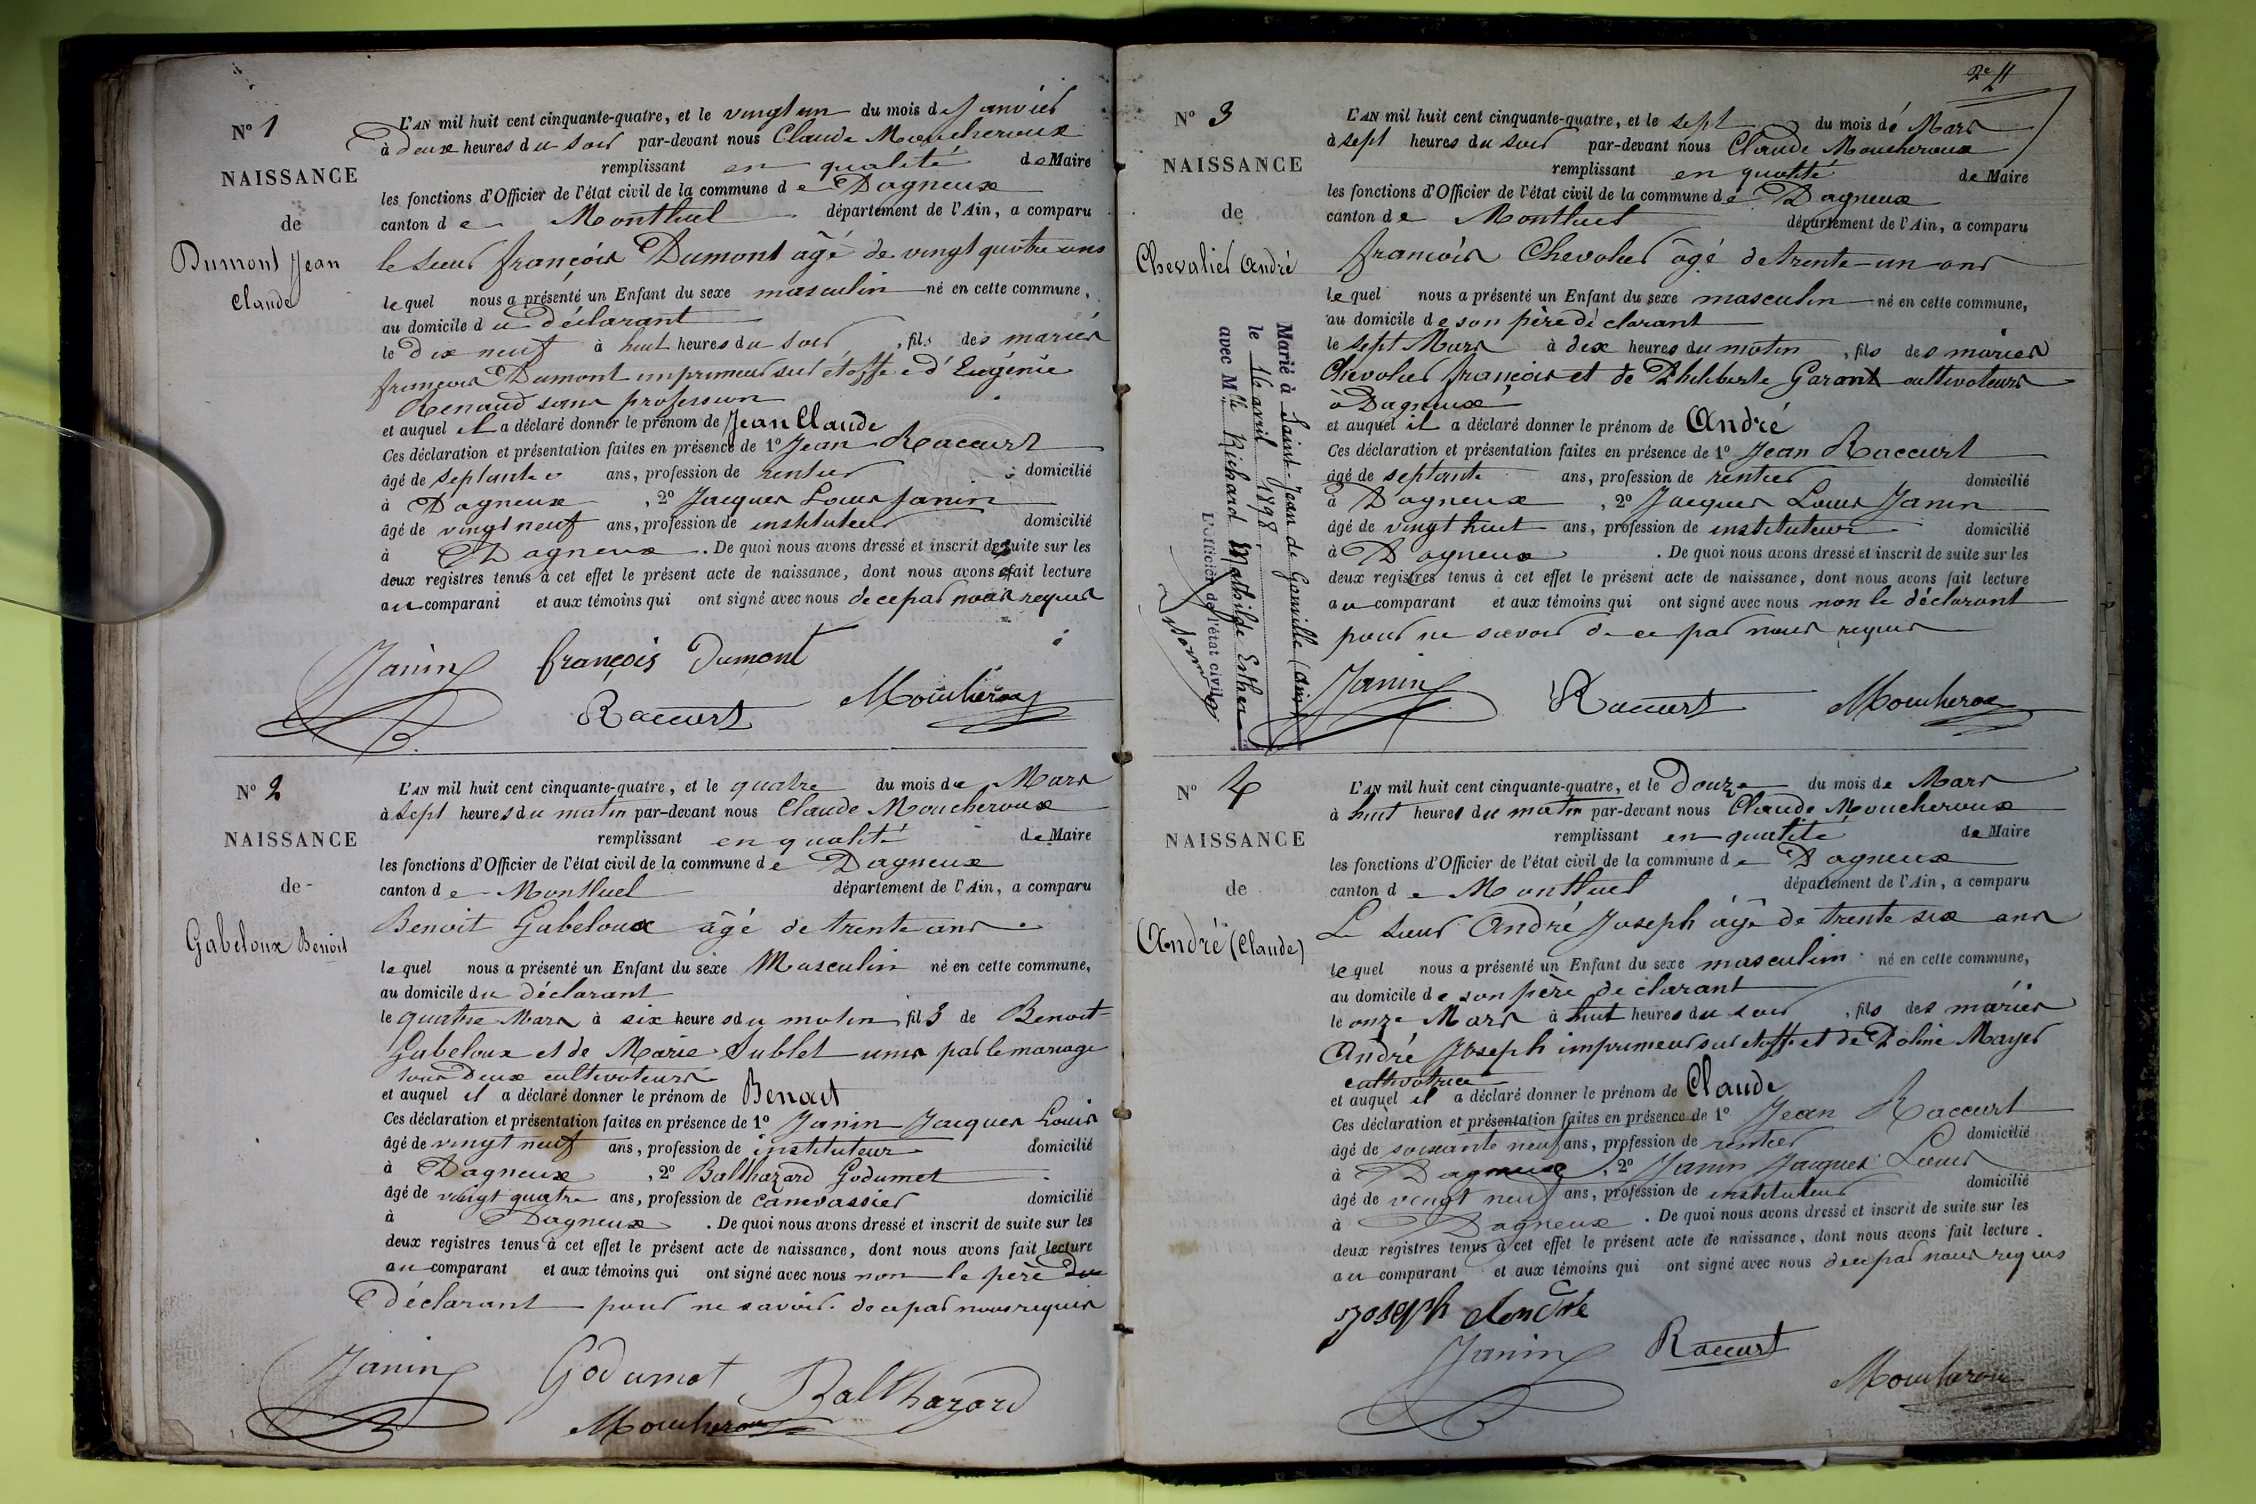 Nº 1
NAISSANCE
de
Dumont Jean
Claude
L'AN mil huit cent cinquante-quatre, et le vingt un du mois de Janvier
à deux heures du soir par-devant nous Claude Moucheroux
remplissant en qualité de Maire
les fonctions d'Officier de l'état civil de la commune de Dagneux
canton de Montluel département de l'Ain, a comparu
le sieur françois Dumont âgé de vingt quatre ans
lequel nous a présenté un Enfant du sexe masculin né en cette commune,
au domicile du déclarant
le dix neuf à huit heures du soir, fils des mariés
françois Dumont imprimeur sur étoffe e d'Eugénie
Renaud sans profession
et auquel il a déclaré donner le prénom de Jean Claude
Ces déclaration et présentation faites en présence de 1º Jean Raccurt
âgé de septante ans, profession de rentier domicilié
à Dagneux, 2º Jacques Louis Janin
âgé de vingt neuf ans, profession de instituteur domicilié
à Dagneux. De quoi nous avons dressé et inscrit de suite sur les
deux registres tenus à cet effet le présent acte de naissance, dont nous avons fait lecture
au comparant et aux témoins qui ont signé avec nous de ce par nous requis
Janin françois Dumont
Raccurt Moucheroux
Nº 2
NAISSANCE
de
Gabeloux Benoit
L'AN mil huit cent cinquante-quatre, et le quatre du mois de Mars
à sept heures du matin par-devant nous Claude Moucheroux
remplissant en qualité de Maire
les fonctions d'Officier de l'état civil de la commune de Dagneux
canton de Montluel département de l'Ain, a comparu
Benoit Gabeloux âgé de trente ans
lequel nous a présenté un Enfant du sexe Masculin né en cette commune,
au domicile du déclarant
le quatre Mars à six heures du matin fils de Benoit
Gabeloux et de Marie Sublet unis par le mariage
tous deux cultivateurs
et auquel il a déclaré donner le prénom de Benoit
Ces déclaration et présentation faites en présence de 1º Janin Jacques Louis
âgé de vingt neuf ans, profession de instituteur domicilié
à Dagneux, 2º Balthazard Godumet
âgé de vingt quatre ans, profession de canevassier domicilié
à Dagneux. De quoi nous avons dressé et inscrit de suite sur les
deux registres tenus à cet effet le présent acte de naissance, dont nous avons fait lecture
au comparant et aux témoins qui ont signé avec nous non le père du
déclarant pour ne savoir de ce par nous requis
Janin Godumet Balthazard
Moucheroux
Nº 3
NAISSANCE
de
Chevalier André
Marié à Saint-Jean de Gonville (Ain)
le 16 avril 1898
avec Mlle Richard Mathilde Esther
L'Officier de l'état civil,
L'AN mil huit cent cinquante-quatre, et le sept du mois de Mars
à sept heures du soir par-devant nous Claude Moucheroux
remplissant en qualité de Maire
les fonctions d'Officier de l'état civil de la commune de Dagneux
canton de Montluel département de l'Ain, a comparu
françois Chevalier âgé de trente-un ans
lequel nous a présenté un Enfant du sexe masculin né en cette commune,
au domicile de son père déclarant
le sept Mars à dix heures du matin, fils des mariés
Chevalier françois et de Philiberte Garant cultivateurs
à Dagneux
et auquel il a déclaré donner le prénom de André
Ces déclaration et présentation faites en présence de 1º Jean Raccurt
âgé de septante ans, profession de rentier domicilié
à Dagneux, 2º Jacques Louis Janin
âgé de vingt huit ans, profession de instituteur domicilié
à Dagneux. De quoi nous avons dressé et inscrit de suite sur les
deux registres tenus à cet effet le présent acte de naissance, dont nous avons fait lecture
au comparant et aux témoins qui ont signé avec nous non le déclarant
pour ne savoir de ce par nous requis
Janin Raccurt Moucheroux
Nº 4
NAISSANCE
de
André (Claude)
L'AN mil huit cent cinquante-quatre, et le Douze du mois de Mars
à huit heures du matin par-devant nous Claude Moucheroux
remplissant en qualité de Maire
les fonctions d'Officier de l'état civil de la commune de Dagneux
canton de Montluel département de l'Ain, a comparu
Le sieur André Joseph âgé de trente six ans
lequel nous a présenté un Enfant du sexe masculin né en cette commune,
au domicile de son père déclarant
le onze Mars à huit heures du soir, fils des mariés
André Joseph imprimeur sur etoffe et de Poline Mayer
cultivatrice
et auquel il a déclaré donner le prénom de Claude
Ces déclaration et présentation faites en présence de 1º Jean Raccurt
âgé de soixante neuf ans, profession de rentier domicilié
à Dagneux, 2º Janin Jacques Louis
âgé de vingt neuf ans, profession de instituteur domicilié
à Dagneux. De quoi nous avons dressé et inscrit de suite sur les
deux registres tenus à cet effet le présent acte de naissance, dont nous avons fait lecture
au comparant et aux témoins qui ont signé avec nous de ce par nous requis
Joseph André
Janin Raccurt
Moucheroux